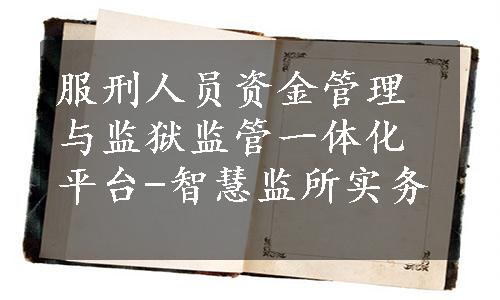 服刑人员资金管理
与监狱监管一体化
平台-智慧监所实务